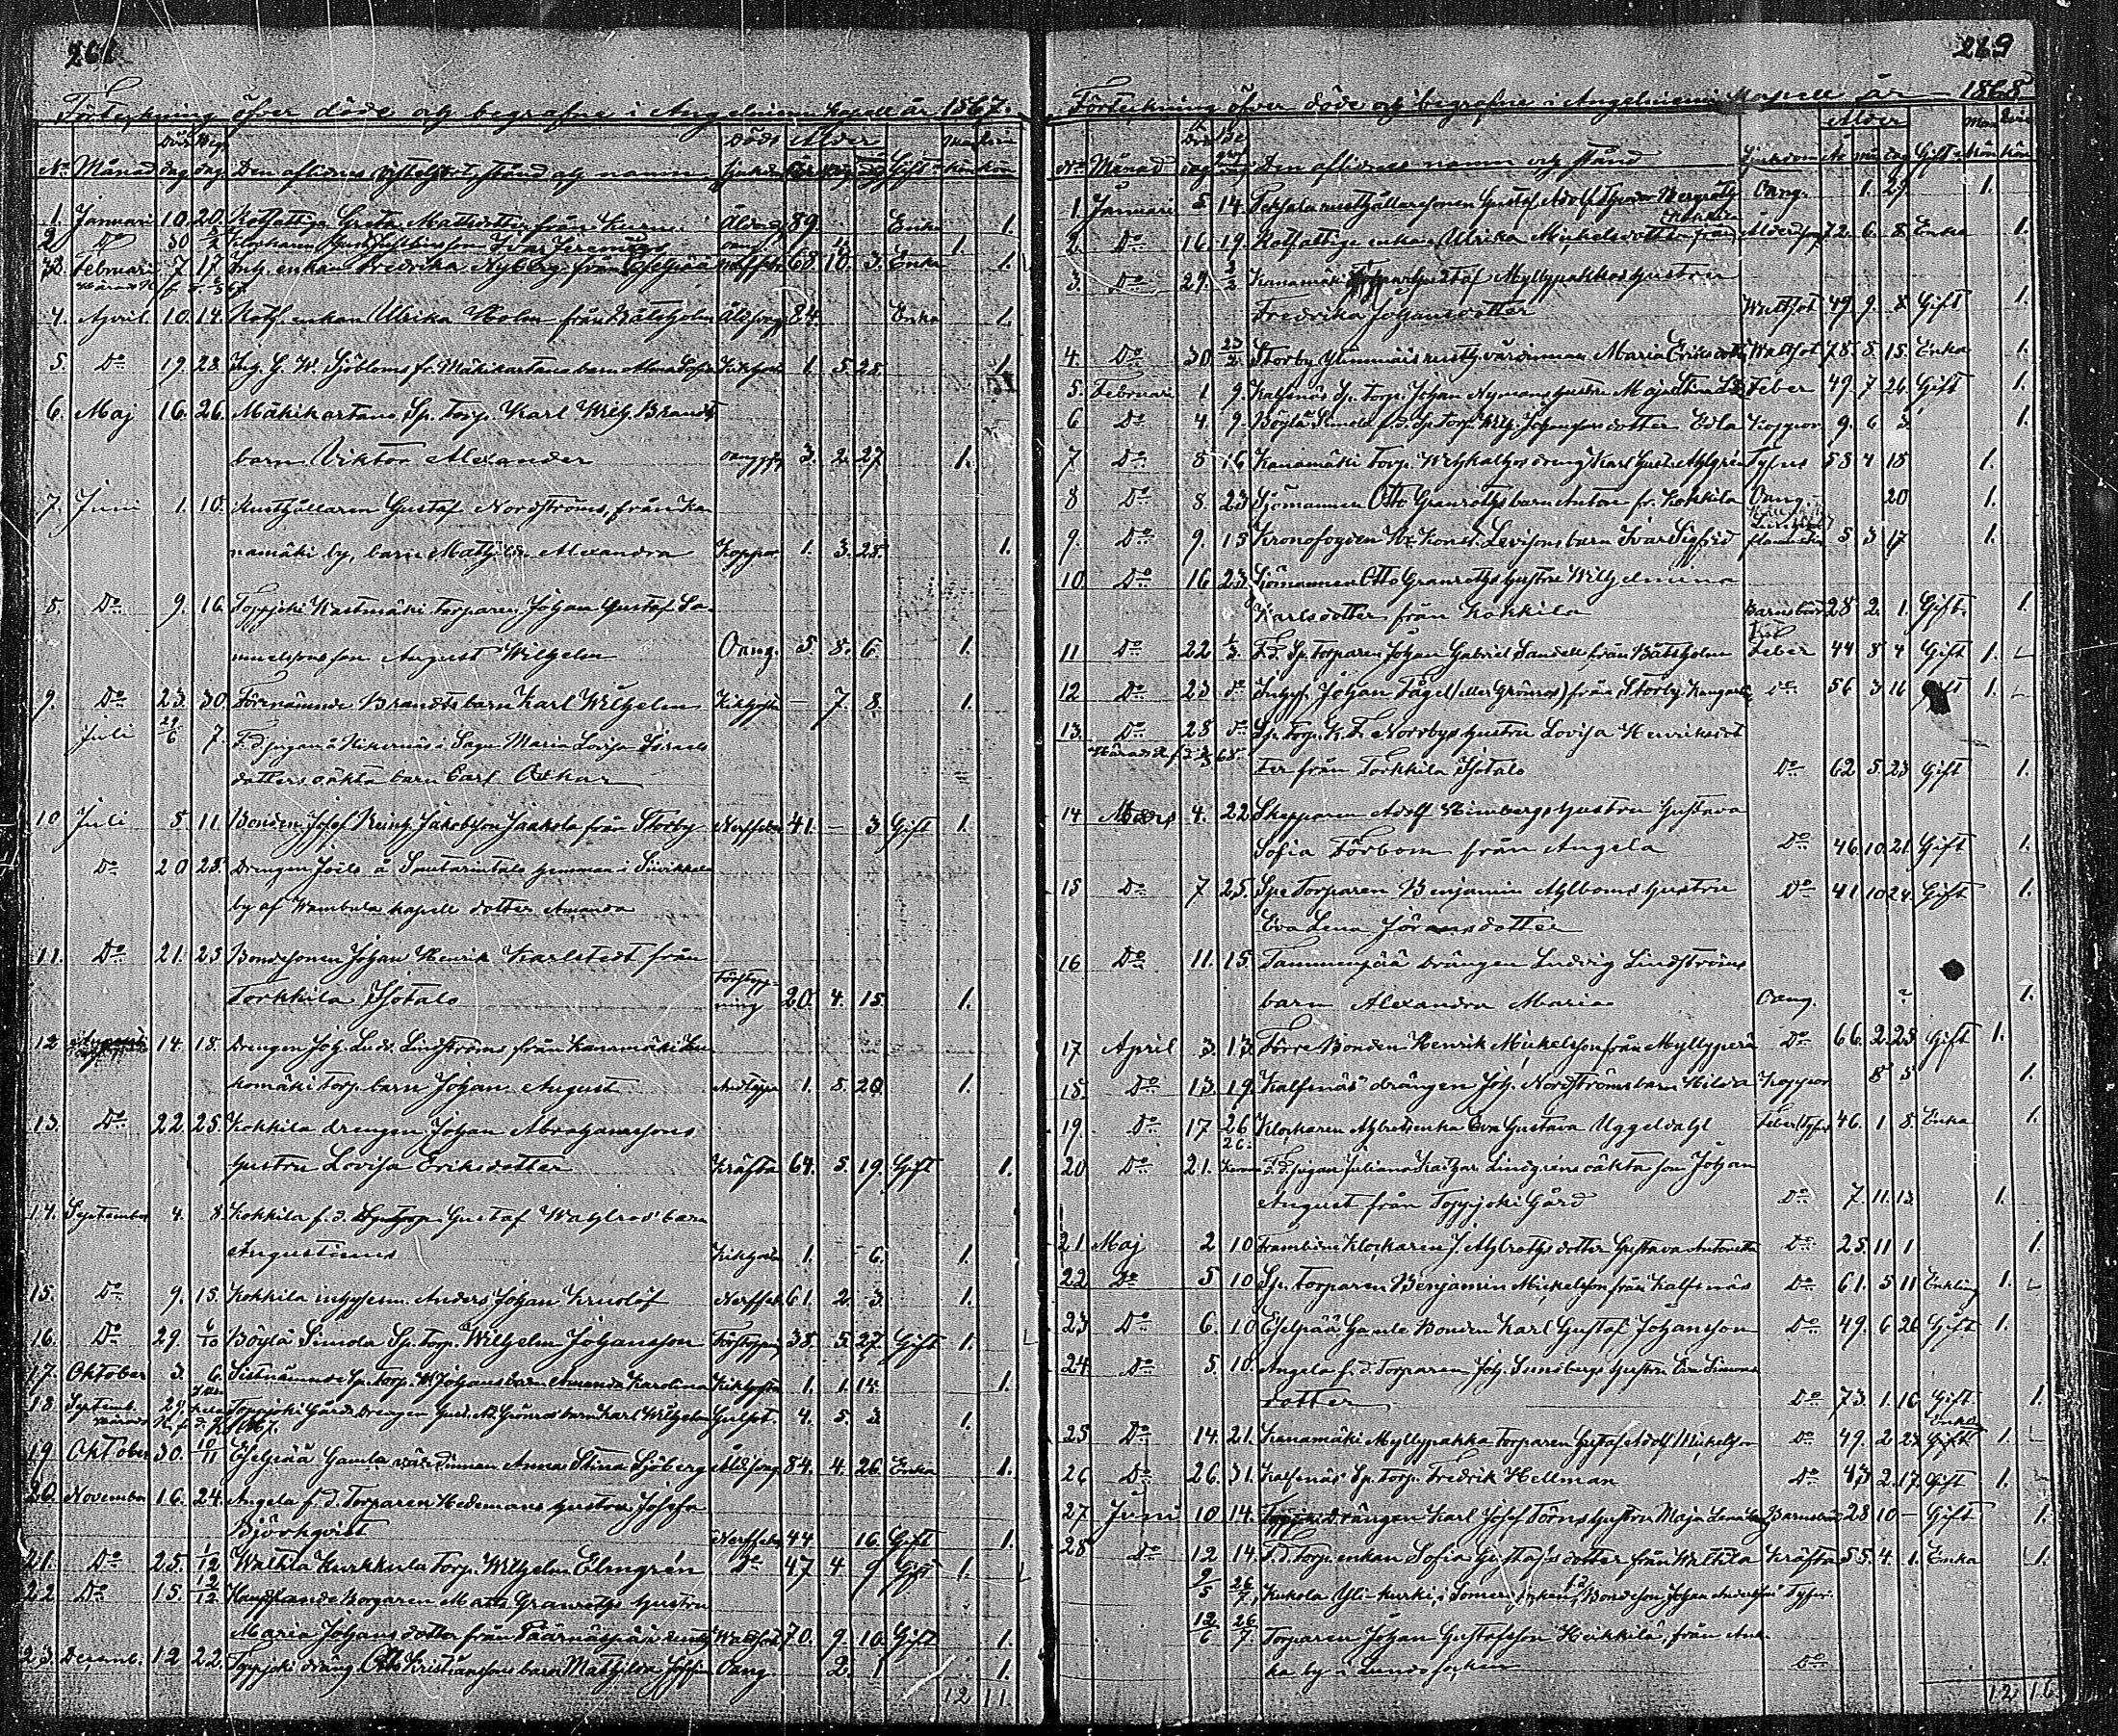 268
Förteckning öfver döde och begrafne i Angelniemi kapell år 1867.
Död Begr. Döds Ålder Man Qvin
No Månad dag dag Den aflidnes och namn sjukdom År mån dag Gift kön kön
1. Januari 10. 20. Rotfattiga Greta Mattsdotter från Åldersd. 89. Enka 1.
2. Do 30 3/2 Ivar Jeremias oang. 1.
3. Februari 7. 17 Inh. enkan Fredrika Nyberg från Eselpää 68. 10. 3. Enka 1.
4. April 10. 14. Rotf. enkan Ulrika Holm från Båtsholm Åldsvag. 84. Enka 1.
5. Do 19. 28. Inh. G. W. Sjöbloms fr. Mäkikartano barn Alma Sofia Kikhosta 1. 5. 25. 1.
6. Maj 16. 26. Mäkikartano Sp. Torp. Karl Wilh. Brandts
barn Viktor Alexander oang. 3. 2. 27. 1.
7. Juni 1. 10. Rusthållaren Gustaf Nordströms, från Ka
namäki by, barn Mathilda Alexandra Koppor 1. 3. 25. 1.
8. Do 9. 16. Toppjoki Kastmäki torparen Johan Gustaf Sa-
muelssons son August Wilhelm Oang. 5. 8. 6. 1.
9. Do 23. 30. Förenämnde Brandts barn Karl Wilhelm Kikhosta — 7. 8. 1.
Juli 29/6 7. F. d. pigan å Sagu Maria Lovisa Israels
dotters oäkta barn Carl Oskar
10 Juli 5. 11. Bonden Josef Reinh. Jakobsson Jaakola från Storby Nerffeber 41. — 3 Gift 1.
Do 20 28. Drengen Joels å hemman i
by af Wambula kapell dotter Amanda
11. Do 21. 25 Bondesonen Johan Henrik Karlstedt från
Torkkila Isotalo Förstopp-
ning 20. 4. 15. 1.
12 14. 18. Drengen Joh. Ludv. Lindströms från Kanamäki
komäki torp. barn Johan August 1. 8. 20. 1.
13. Do 22. 25. Kokkila drengen Johan Abrahamssons
hustru Lovisa Eriksdotter Kräfta 64. 5. 19. Gift 1.
14. September 4. 8. Kokkila f. d. Gustaf Wahlroos barn
Augustinus Kikhosta 1. 6. 1.
15. Do 9. 15. Kokkila inhysesm. Anders Johan Krulöf Nerffeb. 61. 2. 3. 1.
16. Do 29. 6/10 Böylä Simola Sp. Torp. Wilhelm Johansson Förstoppn. 38. 5. 27. Gift 1.
17. Oktober 3. 6. Sistnämnde Sp. Torp. W. Johanss. barn Amanda Karolina Kikhosta 1. 1. 14. 1.
18. Septemb. 29. Toppjoki Gårds Drengen Gust. Ad. Grönroos barn Karl Wilhelm Gulsot. 4. 5. 3. 1.
19. Oktober 30. 10/11 Eselpää Gamla värdinnan Anna Stina Sjöberg Åldsvag. 84. 4. 26. Enka 1.
20. November 16. 24. Angela f. d. Torparen Hedemans hustru Josefa
Björkqvist Nerffeber 44 16. Gift 1.
21. Do 25. 1/12 Waltila Kurkkula Torp. Wilhelm Elmgrén Do 47 4 9 Gift 1.
22. Do 15. 1/12 Borgaren Matts Granroths hustru
Maria Johansdotter från Wattusot 70. 9. 10. Gift 1.
23. Decemb. 12 22. Toppjoki dräng Otto Kristianssons barn Mathilda Josefin Oang. 2. 1 1.
12 11.
269
Förteckning öfver döde och begrafne i Angelniemi Kapell år 1868
Ålder Man Qvin
No Månad dag dag Den aflidnes namn och stånd Sjukdom År mån dag Gift Kön kön
1. Januari 5 14 Rusthållaresonen Gustaf Adolf Theodor Bergroth Oang. 1. 29. 1.
2. Do 16. 19. Rotfattige enkan Ulrika Mickelsdotter från Ålderdom 72. 6. 8. Enka 1.
3. Do 29. 3/2 Kanamäki Torparen Gustaf Myllypakkas hustru
Fredrika Johansdotter Wattsot 49. 9. 8. Gift 1.
4. Do 30. 23/2 Storby rusth. värdinnan Maria Eriksdotter Wattsot 78. 8. 15. Enka 1.
5. Februari 1 9. Kalfsnäs Sp. Torp. Johan Nymans hustru Maja Stina Feber 49. 7 26. Gift 1.
6 Do 4. 9. Böylä Simola f. d. Sp. Torp. Wilh. Johanssons dotter Edla Koppor 9. 6 3 1.
7 Do 8 16 Kanamäki Torp. dräng Karl Gust. Ahlgrén Tyfus 58 4 18 1.
8 Do 8. 23 Sjömannen Otto Granroths barn Anton fr. Kokkila Oang. 20 1.
9. Do 9. 15 Kronofogden Konst. Levisons barn Ivar Sigfrid 5 3 17 1.
10. Do 16 23. Sjömannen Otto Granroths hustru Wilhelmina
Karlsdotter från Kokkila Barnsbörd 28. 2. 1. Gift. 1.
11 Do 22 1/3 F. d. Sp. torparen Johan Gabriel Sandell från Båtsholm Feber 44 8 4 Gift 1.
12 Do 23. Do Inhys. Johan Fågel (eller Grönroos) från Storby Do 56 3 16 Gift 1.
13. Do 28 Do Sp. Torp. K. F. Norrbys hustru Lovisa Henriksdot
ter från Torkkila Isotalo Do 62 5. 23 Gift 1.
14 Mars 4. 22 Skepparen Adolf Himbergs hustru Gustava
Sofia Förbom från Angela Do 46. 10. 21. Gift 1.
15 Do 7 25. Sp. Torparen Benjamin Ahlboms hustru Do 41 10 24. Gift 1.
Eva Lena Göransdotter
16 Do 11. 15. Tammenpää drängen Ludvig Lindströms
barn Alexandra Maria Oang. ? 1.
17 April 3. 13. Förre Bonden Henrik Mickelsson från Myllyperä Do 66. 2. 23 Gift 1.
18. Do 13. 19. Kalfsnäs drängen Joh. Nordströms barn Hilda Koppor 8 5 1.
19. Do 17 26 Klockaren Ahlroths enka Eva Gustava Uggeldahl Feber Tyfus 46. 1 8. Enka 1.
20 Do 21. 26. F. d. pigan Juliana Lindgréns oäkta son Johan
August från Toppjoki Gård Do 7. 11. 13. 1.
21 Maj 2 10 Framlidne Klockaren J. Ahlroths dotter Gustava Antonetta Do 25. 11 1 1.
22. Do 5 10 Sp. Torparen Benjamin Mickelsson från Kalfsnäs Do 61. 5 11 Enkling 1.
23 Do 6. 10 Eselpää Gamle Bonden Karl Gustaf Johansson Do 49. 6 26 Gift 1.
24 Do 5. 10. Angela f. d. Torparen Joh. Sundbergs hustru Eva Simons
dotter Do 73. 1. 16 Gift 1.
25 Do 14. 21. Kanamäki Myllypakka torparen Gustaf Adolf Mickelsson Do 49. 2 22 Gift 1.
26 Do 26. 31. Kalfsnäs Sp. Torp. Fredrik Hellman Do 43 2. 17. Gift 1.
27 Juni 10 14. Drängen Karl Josef Törns hustru Maja Lena Barnsbörd 28 10 — Gift 1.
28 Do 12 14. F. d. Torp. enkan Sofia Gustafsdotter från Waltila Kräfta 55. 4. 1. Enka 1.
9/5 26/7 Kukola Yli-kurki, i Somero socken, Bondeson Johan Tyfus
12/6 26/7 Torparen Johan Gustafsson Heikkilä, från
ka by i Lundo socken Do
12 16